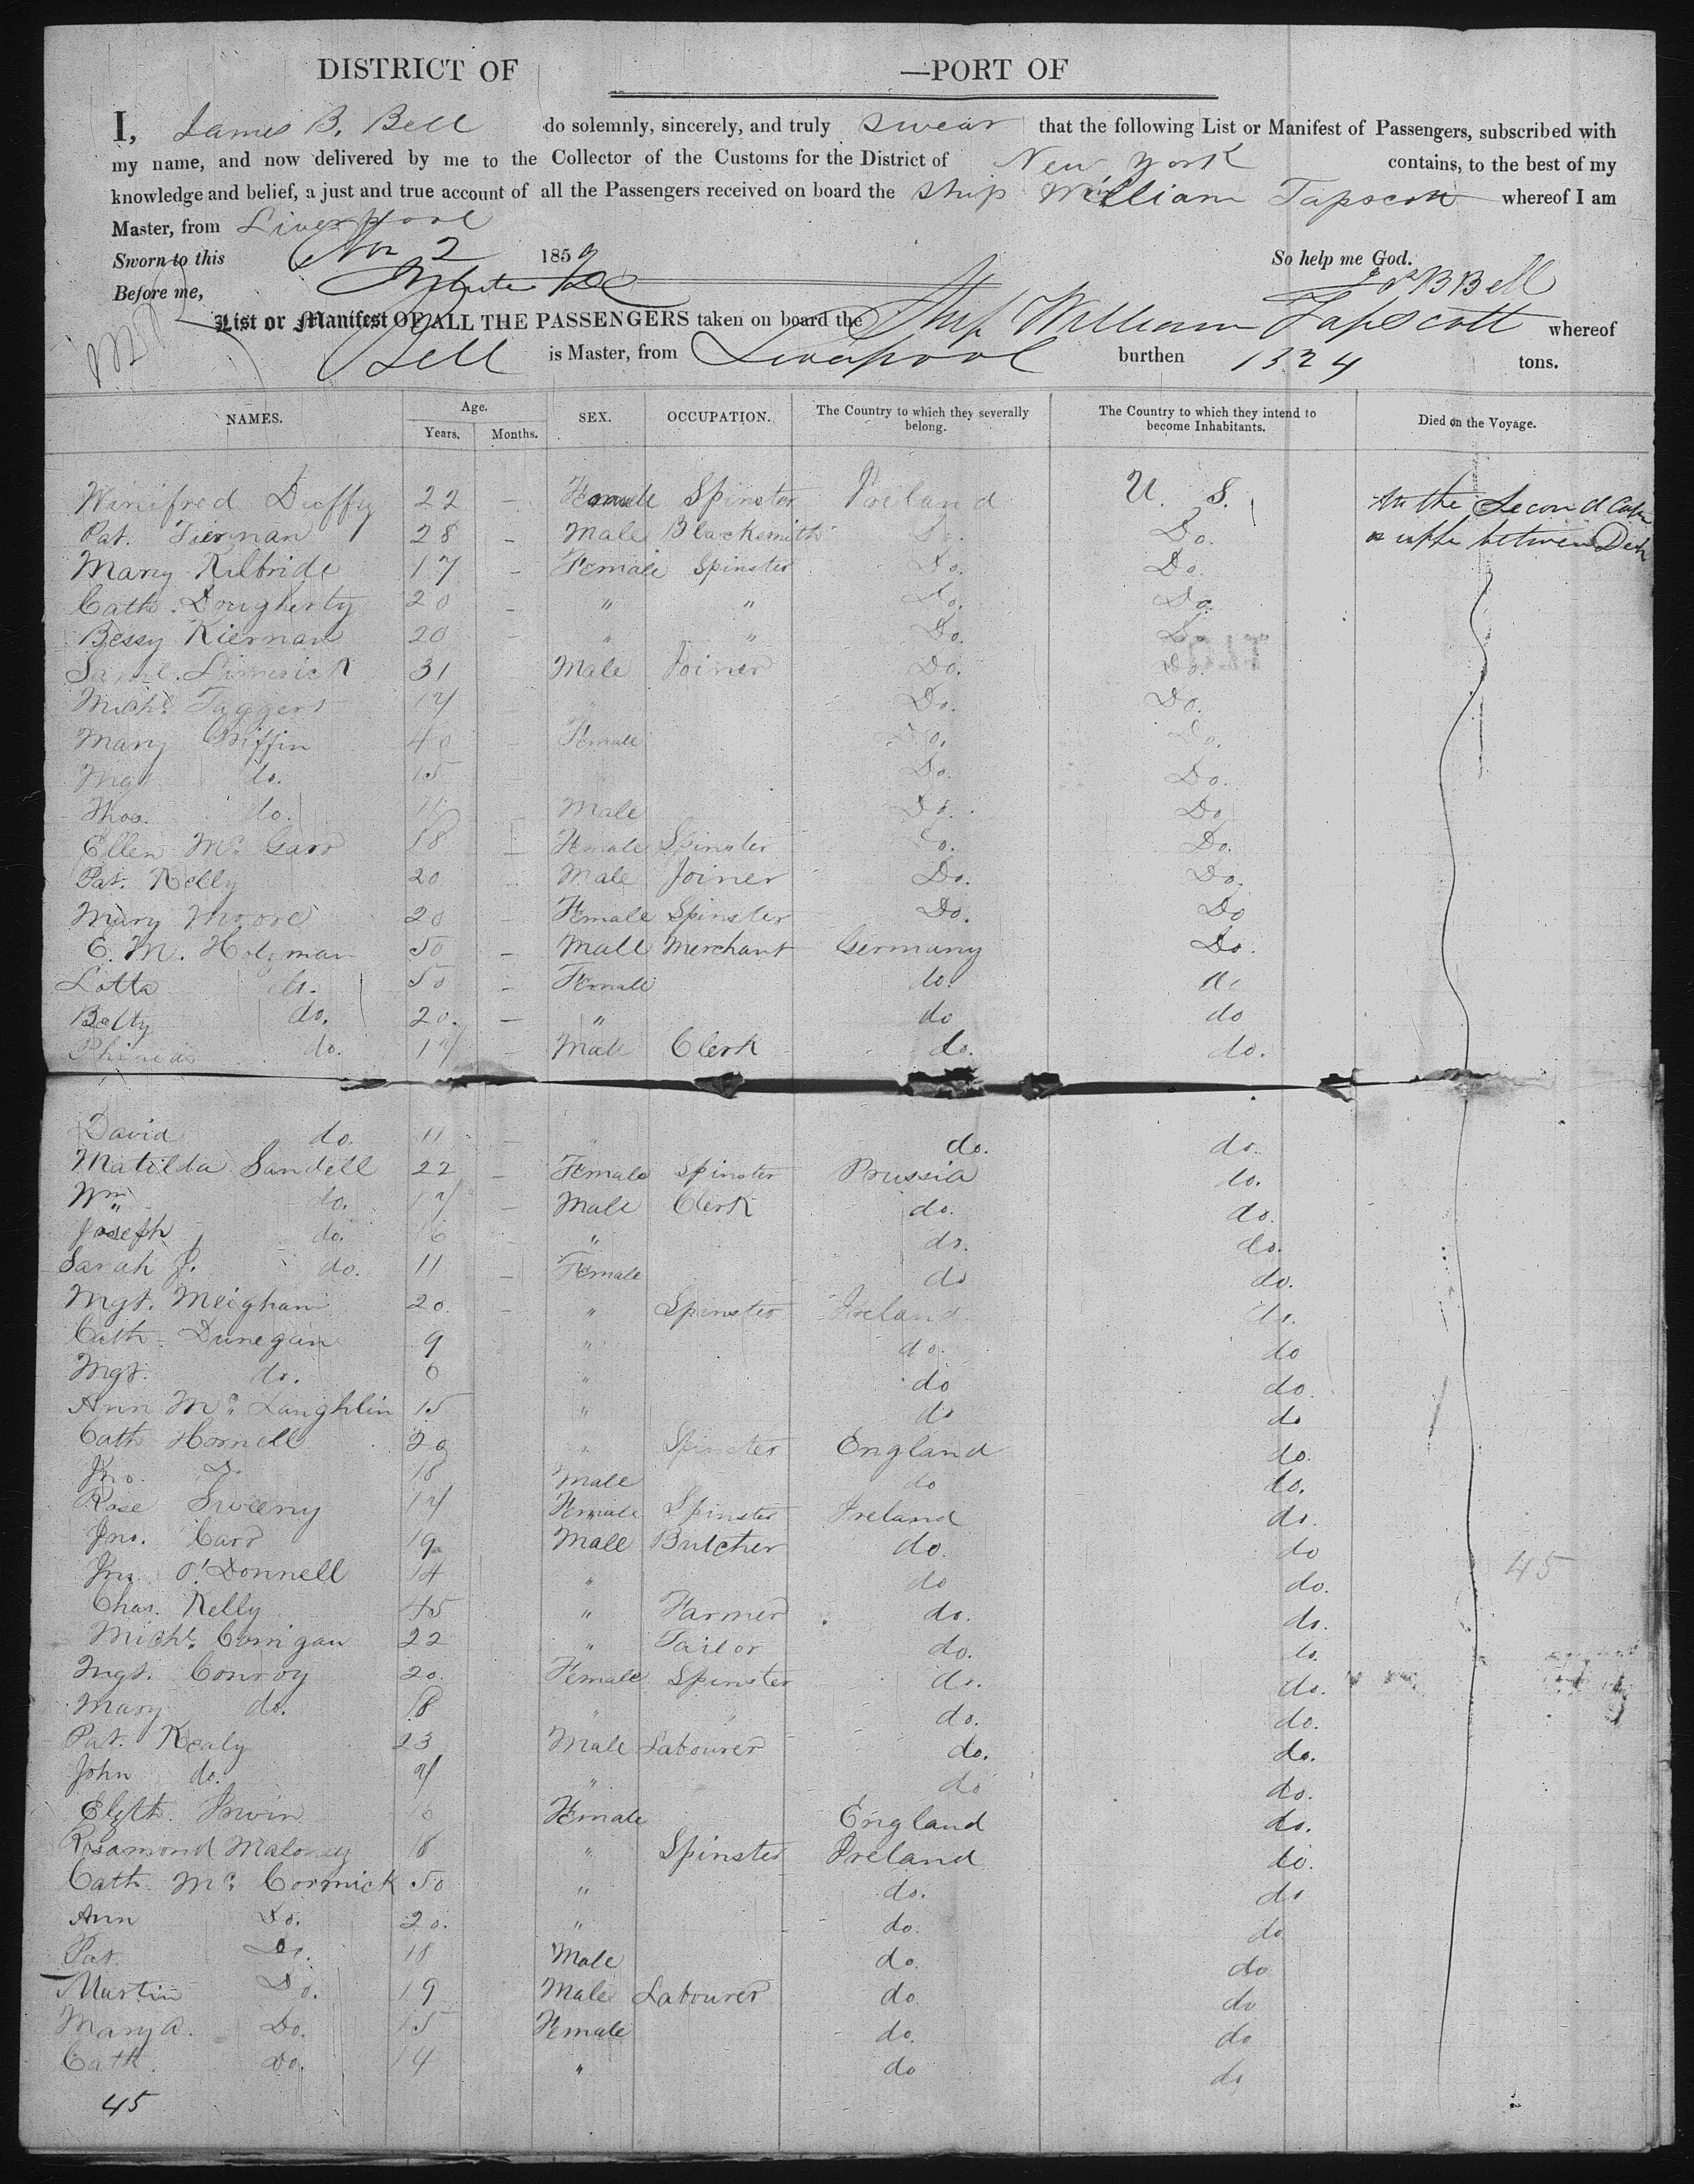 DISTRICT OF —PORT OF
I, James B. Bell do solemnly, sincerely, and truly swear that the following List or Manifest of Passengers, subscribed with
my name, and now delivered by me to the Collector of the Customs for the District of New York contains, to the best of my
knowledge and belief, a just and true account of all the Passengers received on board the ship William Tapscott whereof I am
Master, from Liverpool
Sworn to this Nov 2 1859 So help me God.
Before me, Jas B Bell
List or Manifest OF ALL THE PASSENGERS taken on board the Ship William Tapscott whereof
Bell is Master, from Liverpool burthen 1324 tons.
NAMES. Age. Years. Months. SEX. OCCUPATION. The Country to which they severally belong. The Country to which they intend to become Inhabitants. Died on the Voyage.
Winifred Duffy 22 – Female Spinster Ireland U. S. In the Second Cabin
Pat. Tiernan 28 – Male Blacksmith Do. Do. or upper between Deck
Mary Kilbride 17 – Female Spinster Do. Do.
Cath. Dougherty 20 – " " Do. Do.
Bessy Kiernan 20 – " " Do. Do.
Saml. Limerick 31 Male Joiner Do. Do.
Michl. Taggert 17 Do. Do.
Mary Griffin 40 – Female Do. Do.
Mgt. do. 15 – Do. Do.
Thos. do. 11 – Male Do. Do.
Ellen Mc Garr 18 – Female Spinster Do. Do.
Pat. Kelly 20 Male Joiner Do. Do.
Mary Moore 20 – Female Spinster Do. Do
E. M. Holzman 50 – Male Merchant Germany Do.
Lotta do. 50 – Female do. do
Betty do. 20. – " do do
Phineas do. 17 – Male Clerk do. do.
David do. 11 – " do. do.
Matilda Sandell 22 – Female Spinster Prussia do.
Wm. do. 17 – Male Clerk do. do.
Joseph do. 16 – " do. do.
Sarah J. do. 11 – Female do do.
Mgt. Meighan 20. – " Spinster Ireland do.
Cath. Dunegan 9 " do. do
Mgt. do. 6 " do do.
Ann Mc Laughlin 15 " do do
Cath Hornell 20 " Spinster England do.
Jno. Do 18 Male do do.
Rose Sweeny 17 Female Spinster Ireland do.
Jno. Carr 19 Male Butcher do. do
Jno O'Donnell 14 " do do.
Chas. Kelly 45 " Farmer do. do. 45
Michl. Corrigan 22 " Tailor do. do.
Mgt. Conroy 20. Female Spinster do. do.
Mary do. 18 " " do. do.
Pat. Kealy 23 Male Labourer do. do.
John do. 7 " do do.
Elizth. Irwin 16 Female England do.
Rosamond Maloney 18 " Spinster Ireland do.
Cath Mc Cormick 50 " do. do
Ann Do. 20. " do. do
Pat. Do. 18 Male do. do
Martin Do. 19 Male Labourer do do
Mary A. Do. 15 Female do. do
Cath. Do. 14 " do do
45